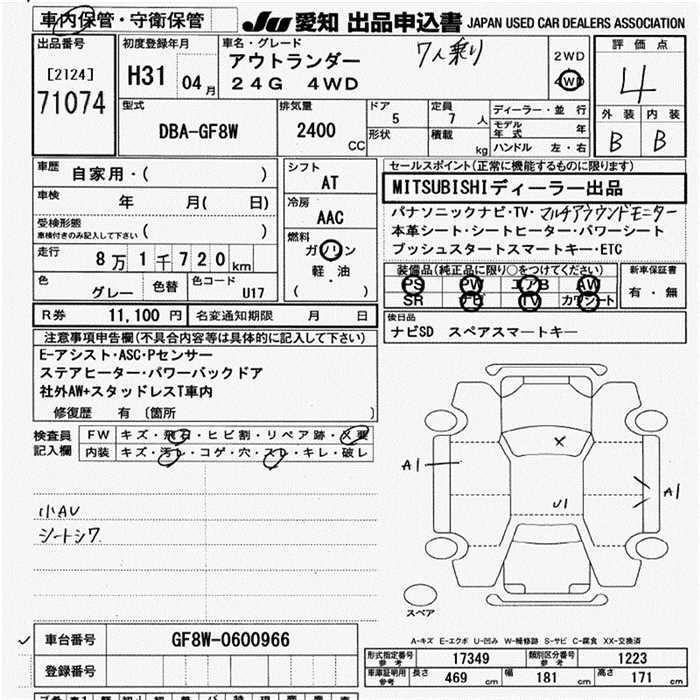 車内保管・守衛保管 JU 愛知 出品申込書 JAPAN USED CAR DEALERS ASSOCIATION
出品番号 初度登録年月 車名・グレード 7人乗り 評価点
[2124] H31 04月 アウトランダー 2WD 4
71074 24G 4WD 4WD
外装 内装
B B
型式 排気量 ドア 定員 ディーラー・並行
DBA-GF8W 2400 CC 5 7人 モデル年式 年
形状 積載 kg ハンドル 左・右
車歴 自家用・( ) シフト AT セールスポイント(正常に機能するものに限ります)
MITSUBISHIディーラー出品
車検 年 月( 日) 冷房 AAC パナソニックナビ・TV・マルチアラウンドモニター
受検形態 ( ) 本革シート・シートヒーター・パワーシート
車検付きのみ記入して下さい 燃料 プッシュスタートスマートキー・ETC
走行 8万1千720km ガソリン 装備品(純正品に限り○をつけてください) 新車保証書
軽・油 PS PW エアB AW 有・無
色 グレー 色替 色コード U17 ( ) SR ナビ TV カワシート
R券 11,100円 名変通知期限 月 日 後日品
ナビSD スペアスマートキー
注意事項申告欄(不具合内容等は具体的に記入して下さい)
E-アシスト・ASC・Pセンサー
ステアヒーター・パワーバックドア
社外AW+スタッドレスT車内
修復歴 有 〔箇所 〕
検査員 FW キズ・飛石・ヒビ割・リペア跡・X要
記入欄 内装 キズ・汚レ・コゲ・穴・スレ・キレ・破レ
X
A1
A1
U1
小AU
シートシワ
スペア
A-キズ E-エクボ U-凹み W-補修跡 S-サビ C-腐食 XX-交換済
車台番号 GF8W-0600966
登録番号
形式指定番号 参考 17349 類別区分番号 参考 1223
車庫証明用 参考 長さ 469 cm 幅 181 cm 高さ 171 cm